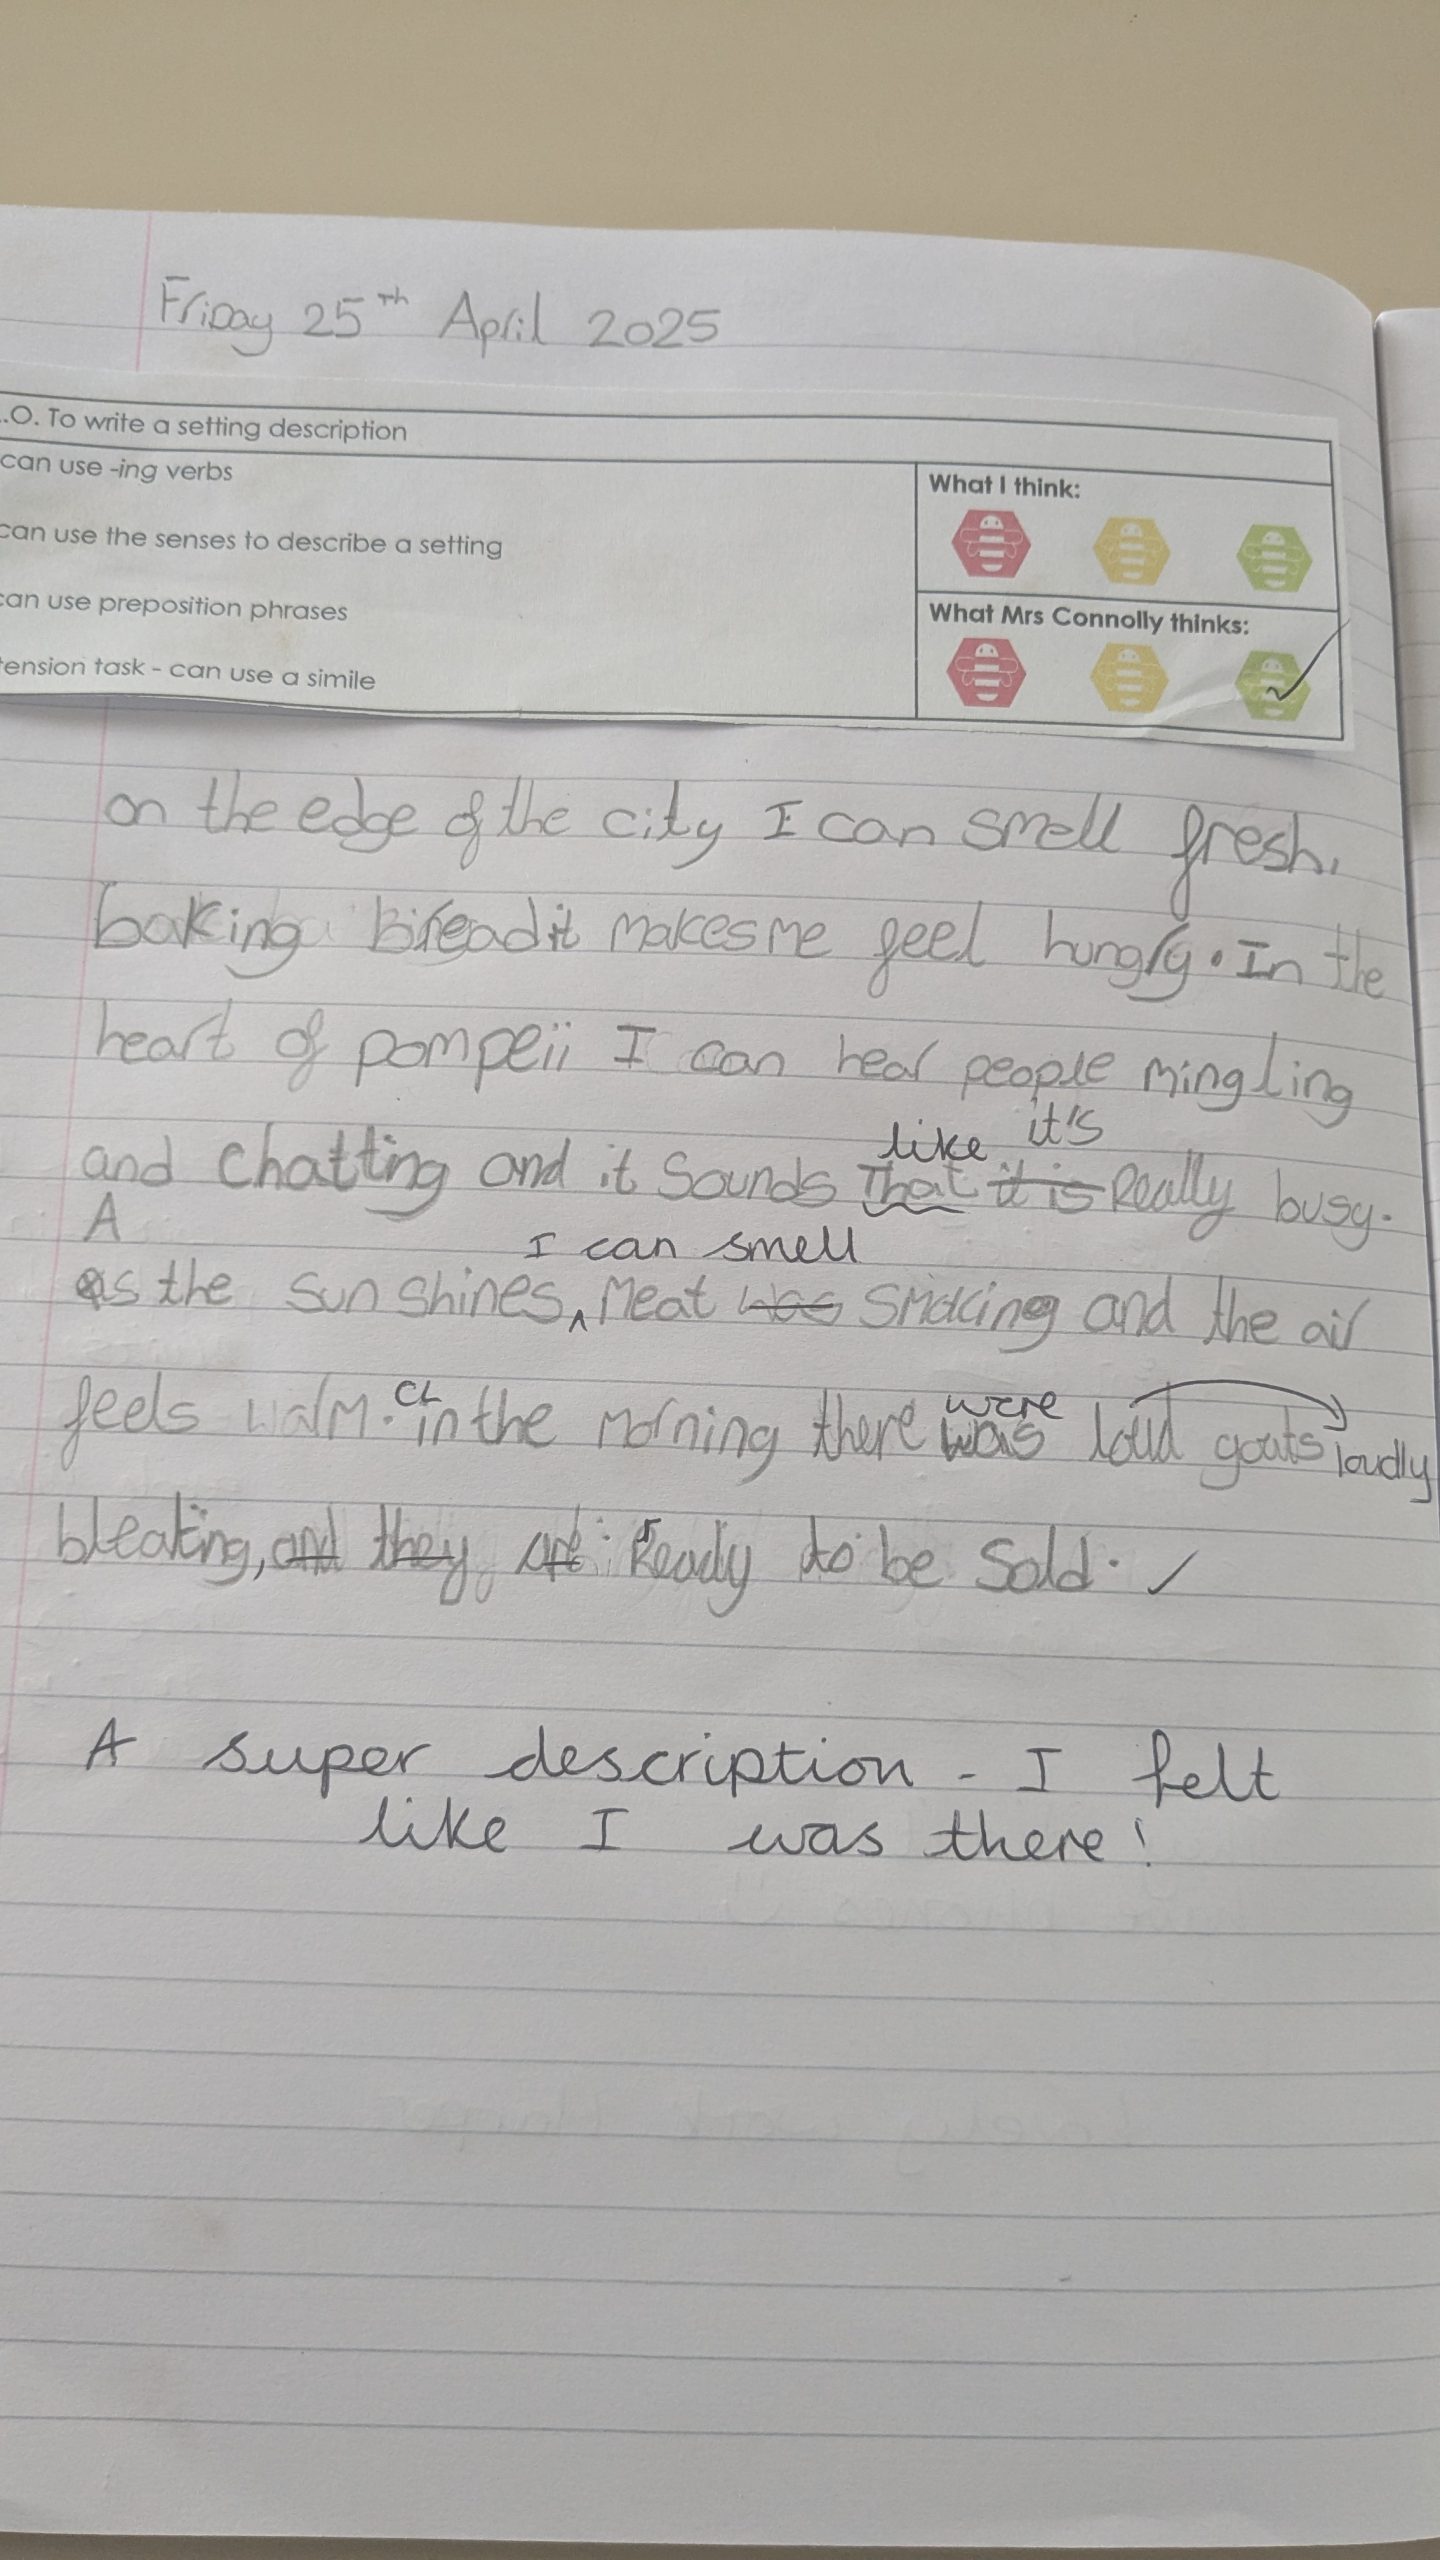 Friday 25th April 2025
.O. To write a setting description
can use -ing verbs
can use the senses to describe a setting
can use preposition phrases
tension task - can use a simile
What I think:
What Mrs Connolly thinks:
on the edge of the city I can smell fresh,
baking bread it makes me feel hungry. In the
heart of pompeii I can hear people mingling
like it's
and chatting and it sounds that it is Really busy.
A
I can smell
as the sun shines, meat was smoking and the air
CL were
feels warm. in the morning there was loud goats loudly
bleating, and they are Ready to be Sold.
A super description - I felt
like I was there!